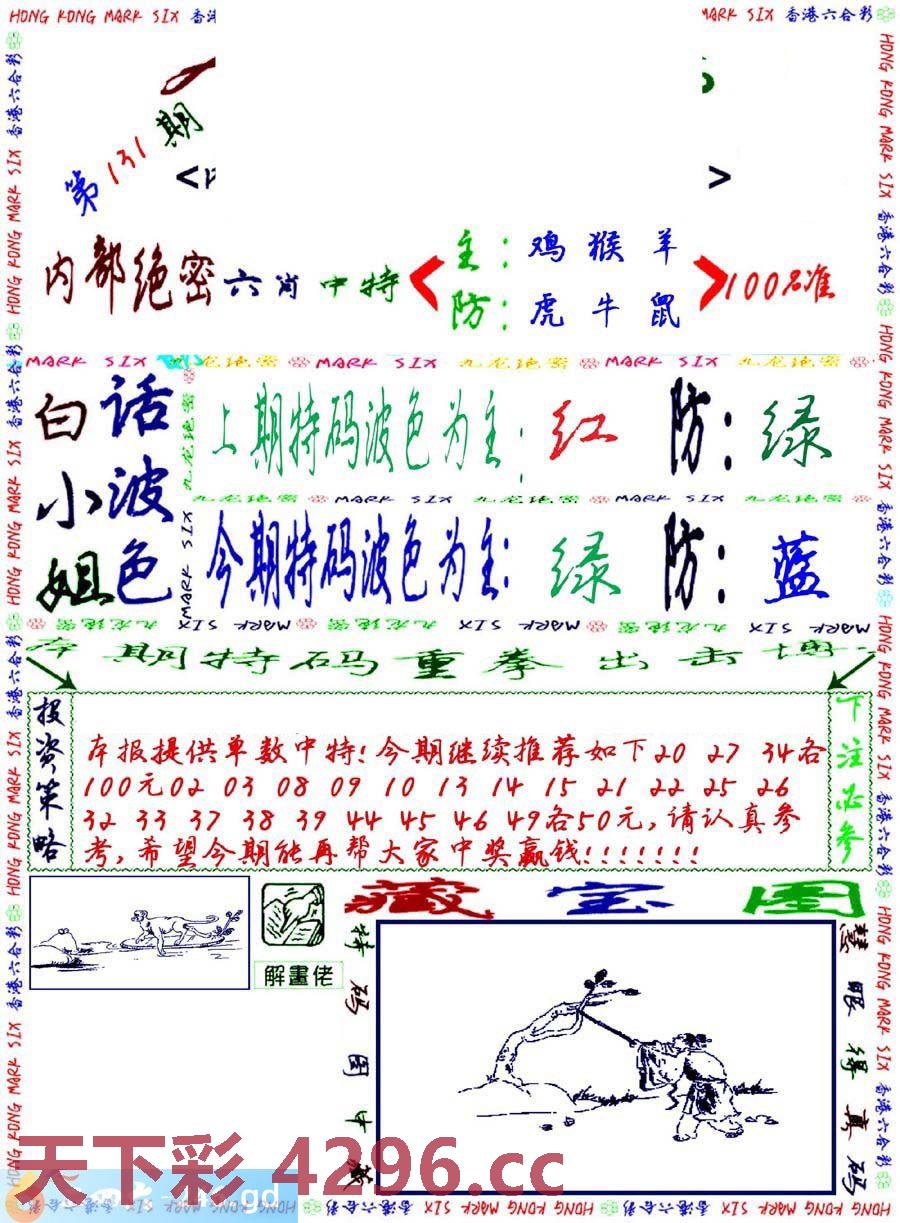 HONG KONG MARK SIX 香港
MARK SIX 香港六合彩
第131期
内部绝密六肖中特
主：鸡猴羊
防：虎牛鼠
100%准
MARK SIX 九龙绝密 MARK SIX 九龙绝密 MARK SIX 九龙绝密
白话
小波
姐色
上期特码波色为主：红 防：绿
九龙绝密 MARK SIX 九龙绝密 MARK SIX 九龙绝密
今期特码波色为主：绿 防：蓝
九龙绝密 MARK SIX 九龙绝密 MARK SIX
本期特码重拳出击
投资策略
本报提供单数中特！今期继续推荐如下20 27 34各
100元02 03 08 09 10 13 14 15 21 22 25 26
32 33 37 38 39 44 45 46 49各50元，请认真参
考，希望今期能再帮大家中奖赢钱！！！！！！！
下注必参
解畫佬
藏宝图
特码图中藏
慧眼得真码
天下彩 4296.cc
gd
HONG KONG MARK SIX 香港六合彩